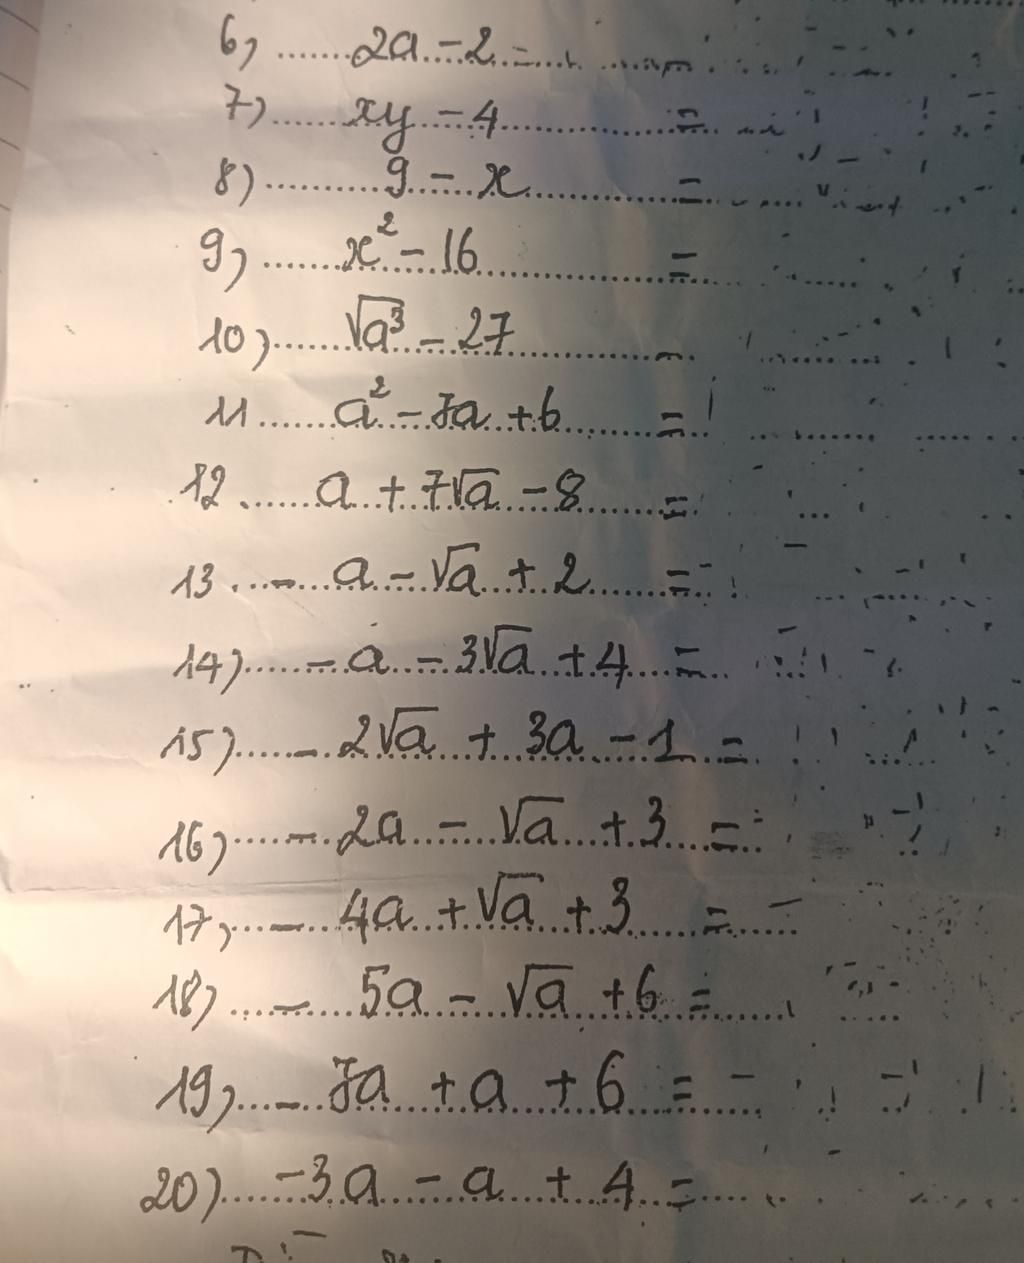 6) 2a - 2 =
7) xy - 4 =
8) 9 - x =
9) x² - 16 =
10) √a³ - 27
11 a² - 7a + 6 =
12 a + 7√a - 8 =
13 - a - √a + 2 =
14) - a - 3√a + 4 =
15) - 2√a + 3a - 1 =
16) - 2a - √a + 3 =
17) - 4a + √a + 3 =
18) - 5a - √a + 6 =
19) - 7a + a + 6 =
20) - 3a - a + 4 =